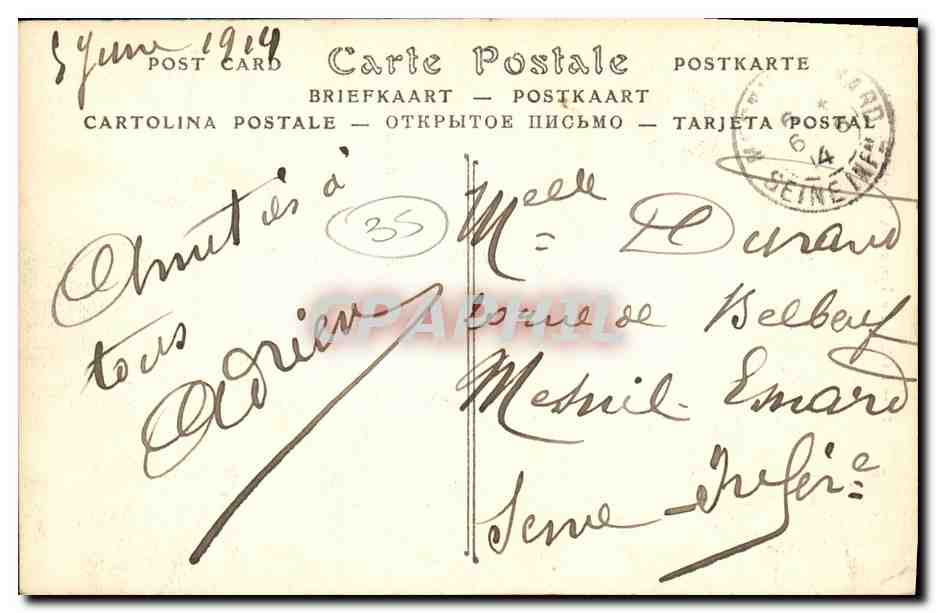 5 Juin 1914
POST CARD Carte Postale POSTKARTE
BRIEFKAART — POSTKAART
CARTOLINA POSTALE — ОТКРЫТОЕ ПИСЬМО — TARJETA POSTAL
6 * 6
14
SEINE INFRE
Amitiés à
tous
Adrien
35
CPAPHIL
Melle Durand
route de Belbeuf
Mesnil-Esnard
Seine-Infére